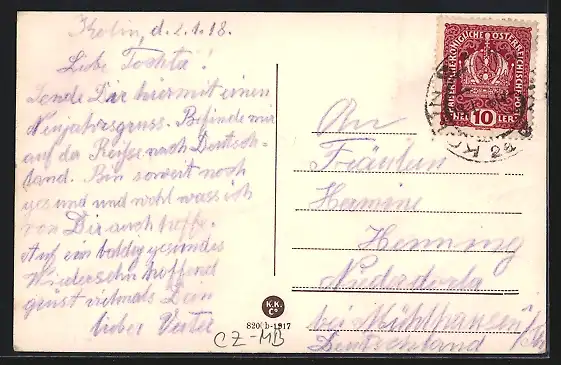 Kolin, d. 2.1.18.
Liebe Toskta!
Sende Dir hiermit einen
Neujahrsgruss. Befinde mir
auf der Reise nach Deutsch-
land. Bin soweit noch
gesund und wohl was ich
von Dir auch hoffe.
Auf ein baldig gesundes
Wiedersehn hoffend
grüst vielmals Dein
lieber Vater
An
Fräulein
Hermine
Hennung
Niederdorla
bei Mühlhausen i/Th
Deutschland
KAISERLICHE KÖNIGLICHE ÖSTERREICHISCHE POST
HELLER 10 HELLER
K.K.
Co
820 b-1917
CZ-MB